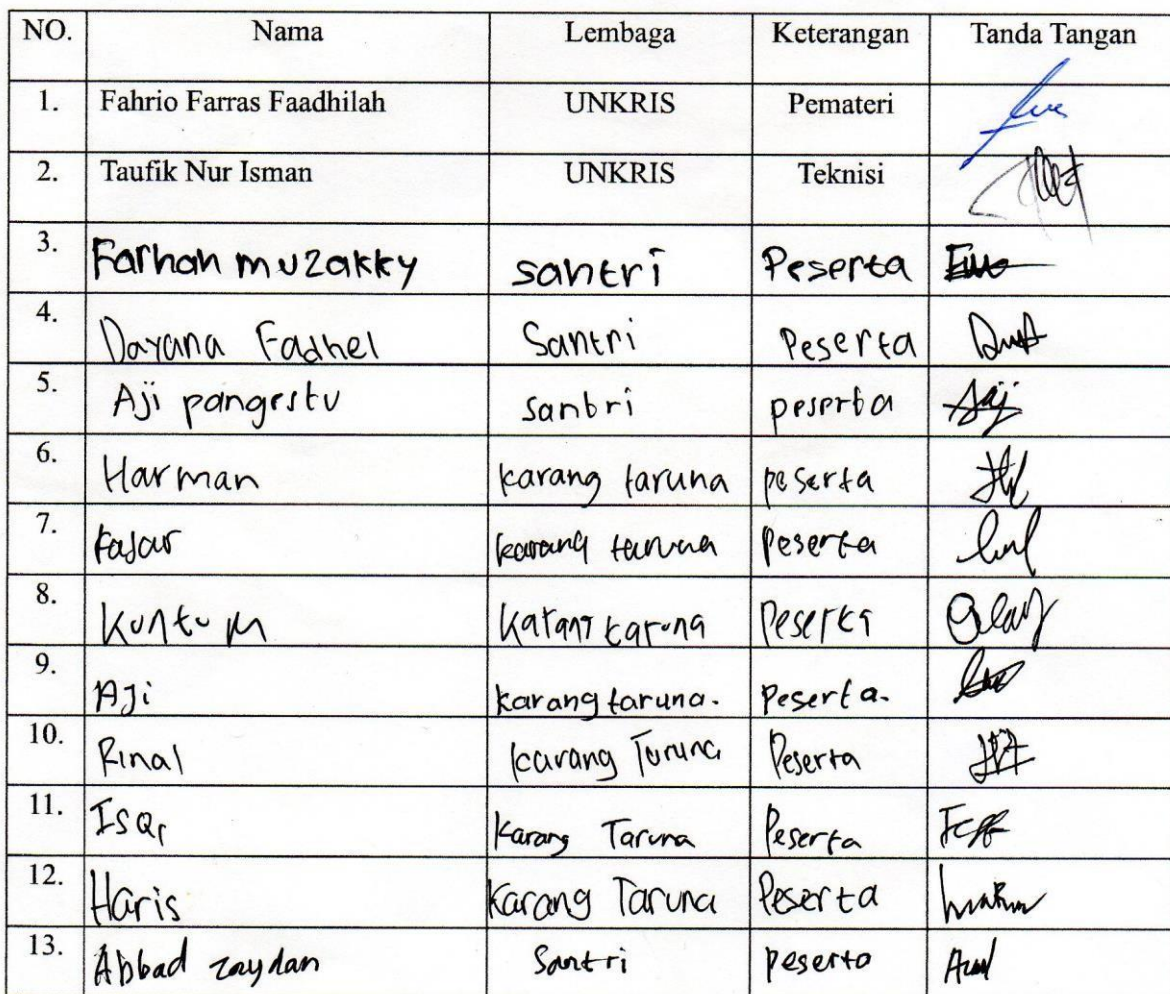 NO. Nama Lembaga Keterangan Tanda Tangan
1. Fahrio Farras Faadhilah UNKRIS Pemateri
2. Taufik Nur Isman UNKRIS Teknisi
3. Farhan muzakky santri Peserta
4. Dayana Fadhel Santri Peserta
5. Aji pangestu santri peserta
6. Harman karang taruna peserta
7. Fajar karang taruna Peserta
8. Kuntum karang taruna Peserta
9. AJi karang taruna. Peserta.
10. Rinal karang Taruna Peserta
11. Karang Taruna Peserta
12. Haris Karang Taruna Peserta
13. Abbad zaydan Santri peserta